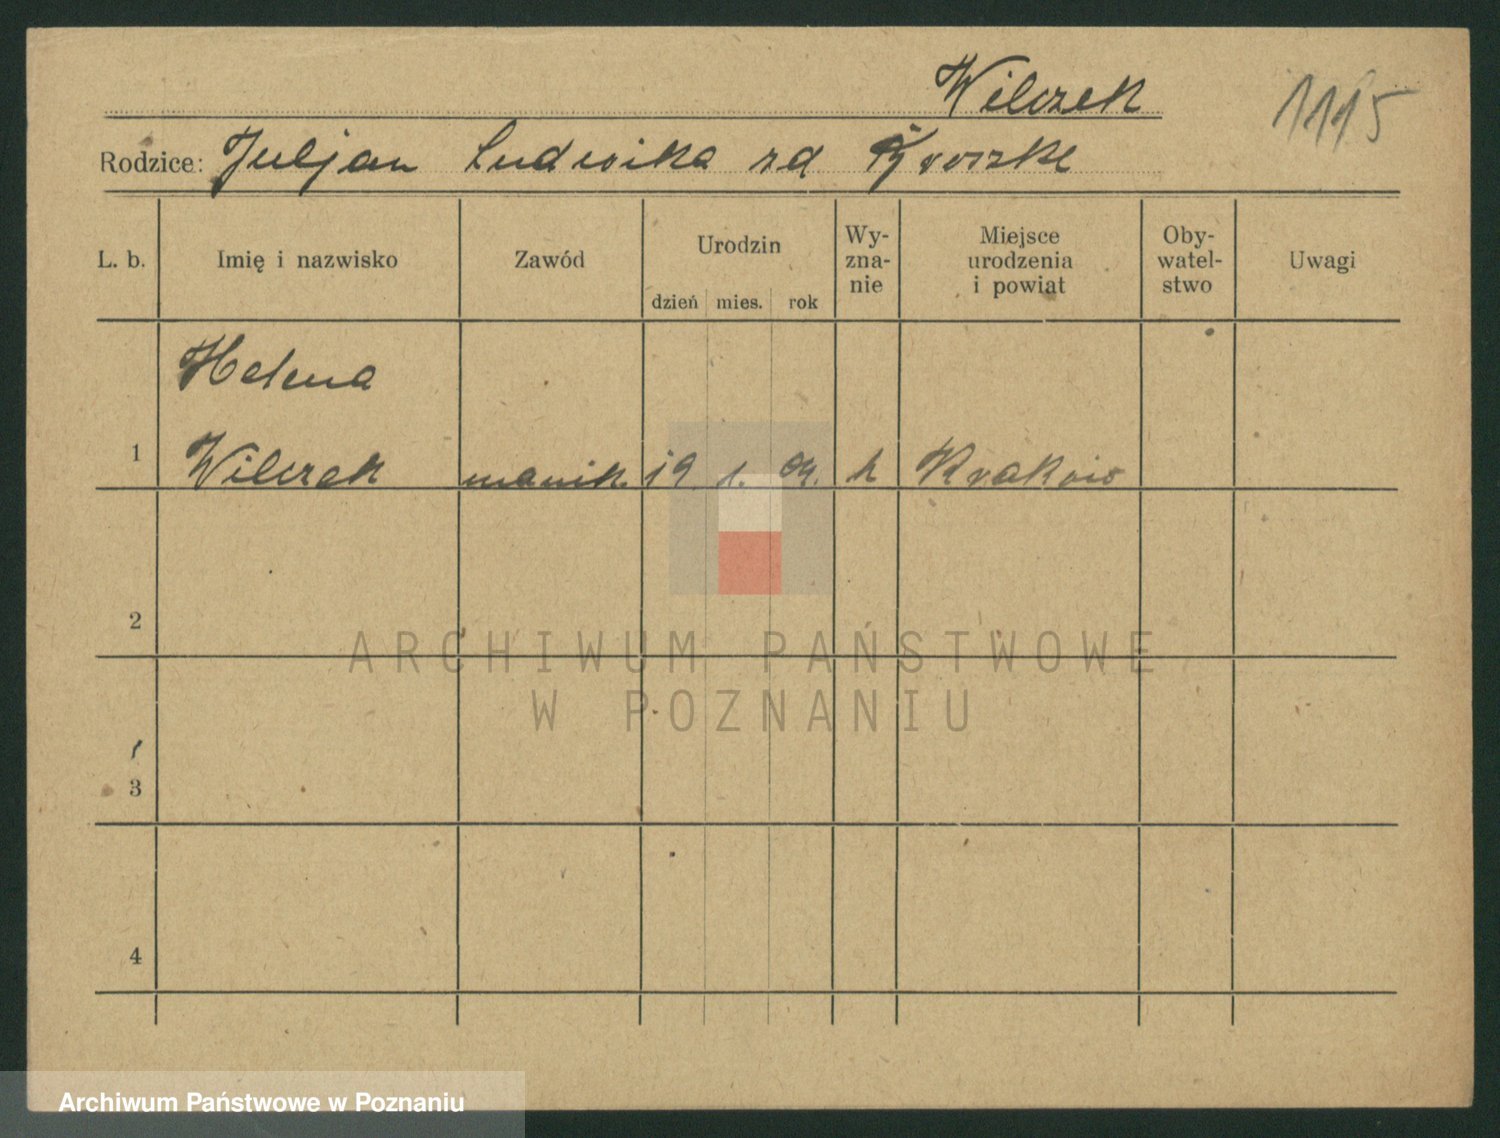 Wilczek
1115
Rodzice: Juljan Ludwika zd
L. b.
Imię i nazwisko
Zawód
Urodzin
dzień mies. rok
Wy-
zna-
nie
Miejsce
urodzenia
i powiat
Oby-
watel-
stwo
Uwagi
Helena
1 Wilczek manik. 19 1. 04. k Kraków
2
3
4
ARCHIWUM PAŃSTWOWE
W POZNANIU
Archiwum Państwowe w Poznaniu